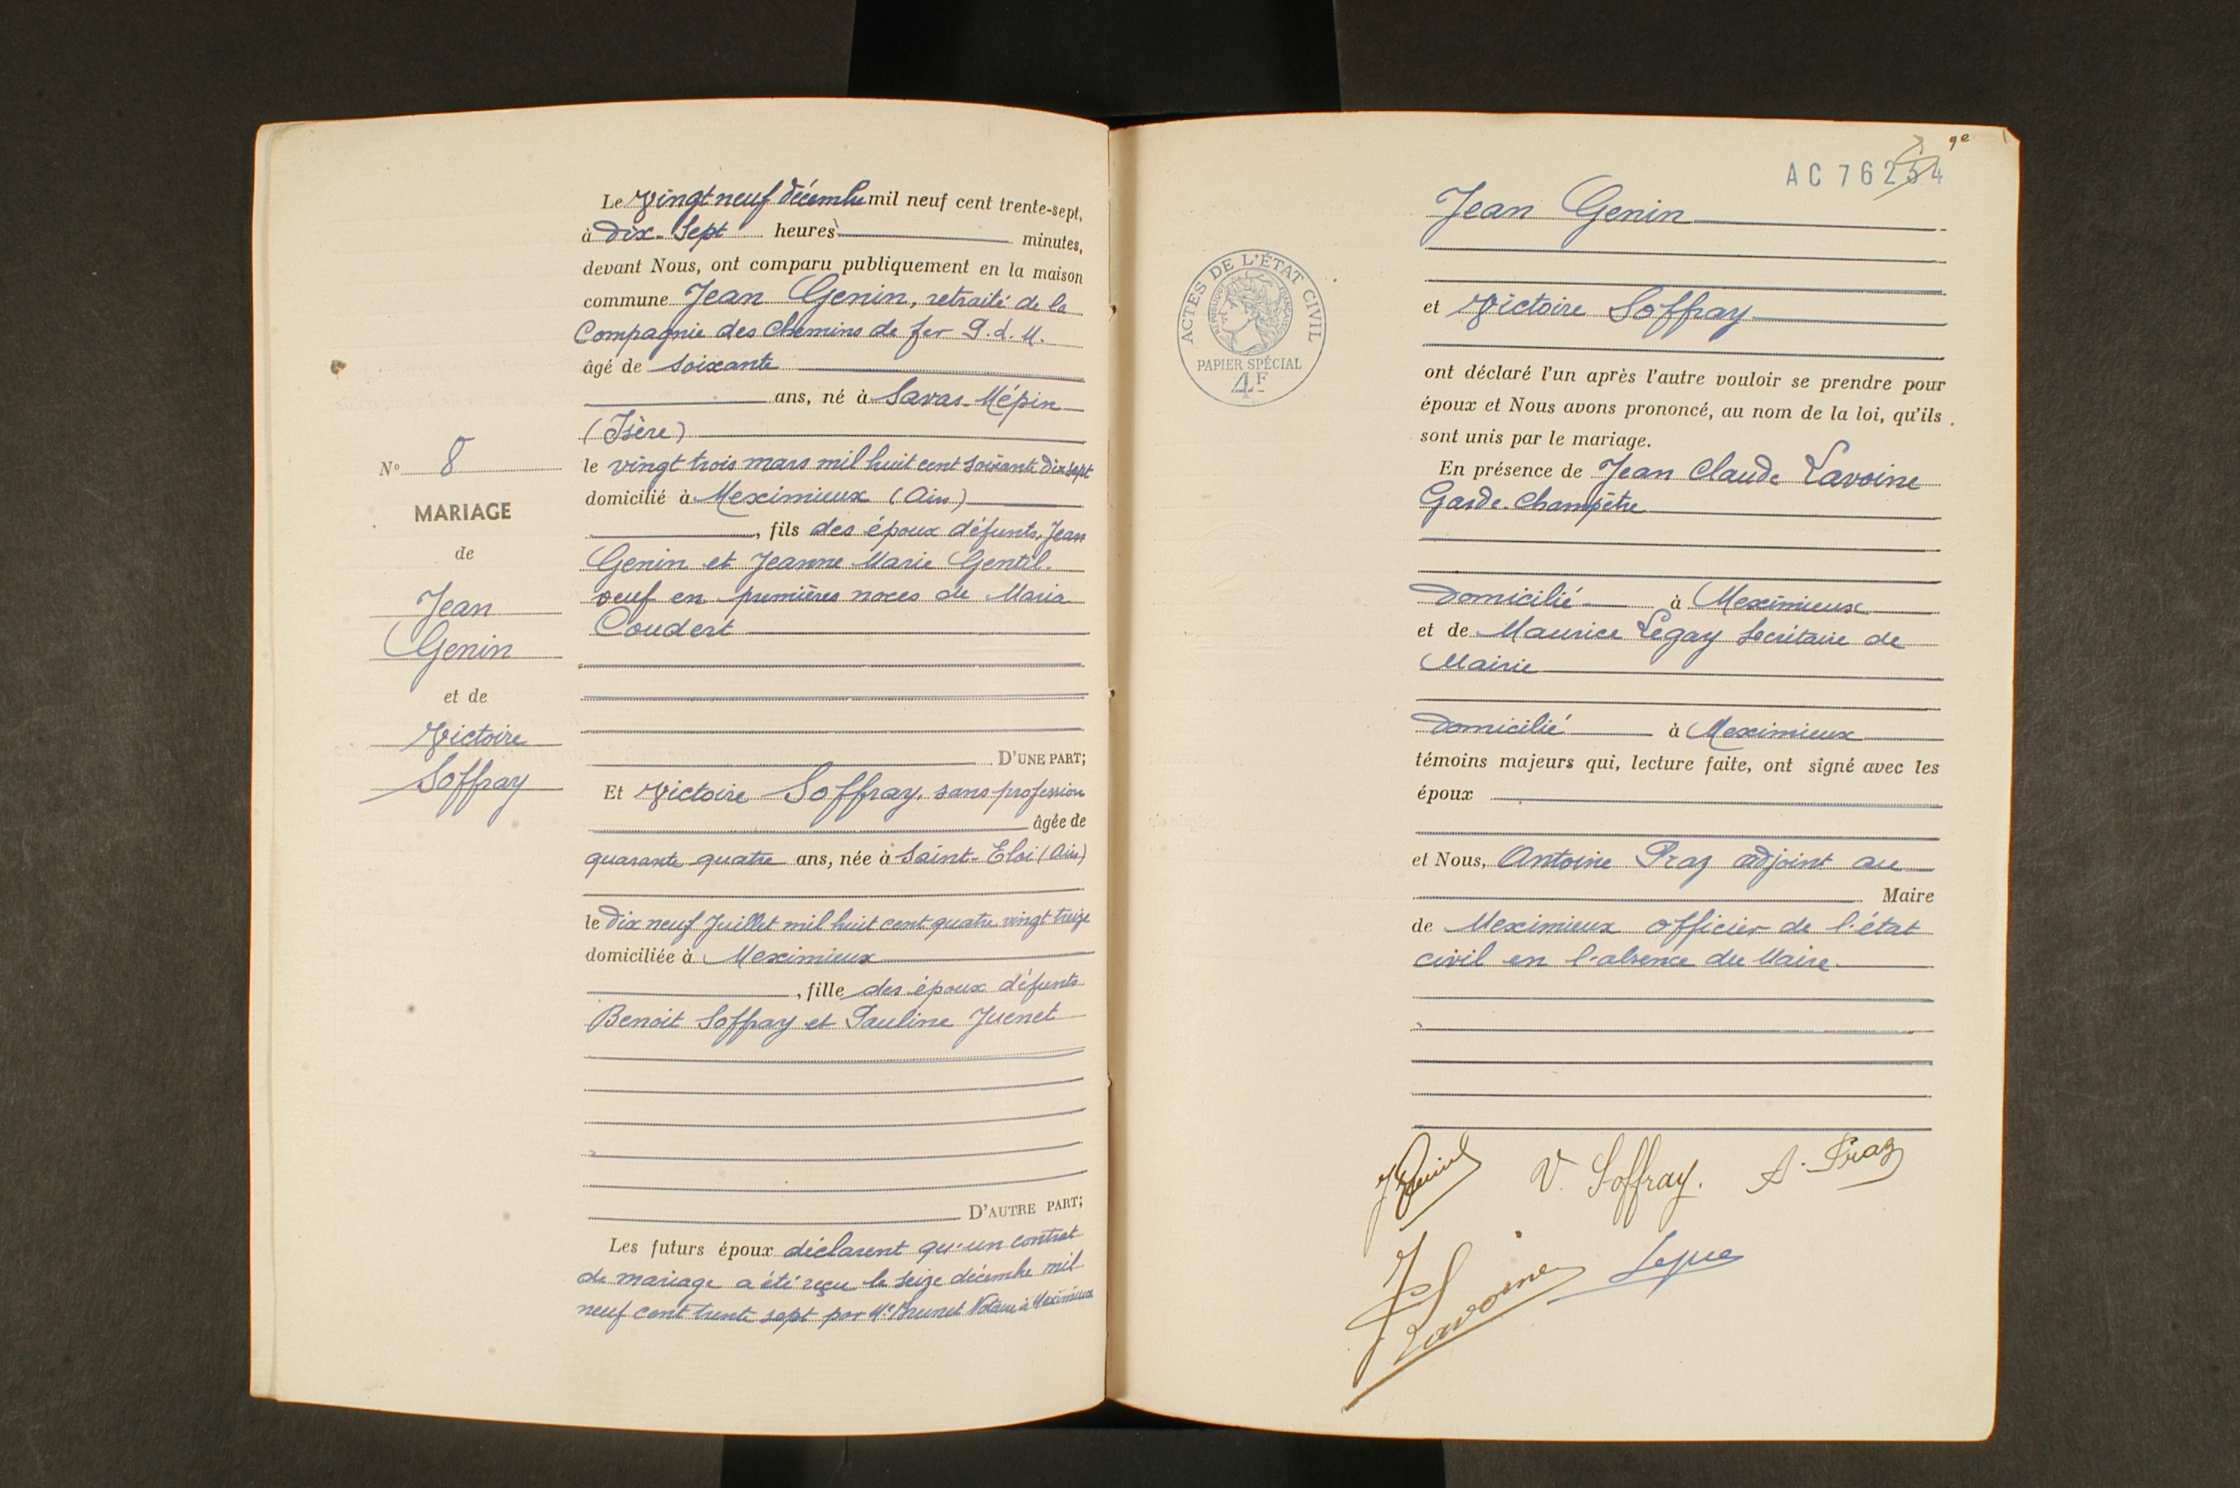 Le Vingt neuf décembre mil neuf cent trente-sept,
à dix-sept heures minutes,
devant Nous, ont comparu publiquement en la maison
commune Jean Genin, retraité de la
Compagnie des Chemins de fer P.L.M.
âgé de soixante
ans, né à Savas-Mépin
(Isère)
le vingt trois mars mil huit cent soixante dix sept
domicilié à Meximieux (Ain)
, fils des époux défunts, Jean
Genin et Jeanne Marie Gentil.
veuf en premières noces de Maria
Coudert
D'UNE PART;
Et Victoire Soffray, sans profession
âgée de
quarante quatre ans, née à Saint-Eloi (Ain)
le dix neuf Juillet mil huit cent quatre vingt treize
domiciliée à Meximieux
, fille des époux défunts
Benoit Soffray et Pauline Juenet
D'AUTRE PART;
Les futurs époux déclarent qu'un contrat
de mariage a été reçu le seize décembre mil
neuf cent trente sept par Me Brunet Notaire à Meximieux
No 8
MARIAGE
de
Jean
Genin
et de
Victoire
Soffray
9e
AC 76254
ACTES DE L'ÉTAT CIVIL
PAPIER SPÉCIAL
4F
Jean Genin
et Victoire Soffray
ont déclaré l'un après l'autre vouloir se prendre pour
époux et Nous avons prononcé, au nom de la loi, qu'ils
sont unis par le mariage.
En présence de Jean Claude Lavoine
Garde-Champêtre
domicilié à Meximieux
et de Maurice Legay Secrétaire de
Mairie
domicilié à Meximieux
témoins majeurs qui, lecture faite, ont signé avec les
époux
et Nous, Antoine Praz adjoint au
Maire
de Meximieux officier de l'état
civil en l'absence du Maire
J Genin V. Soffray. A. Praz
J C Lavoine